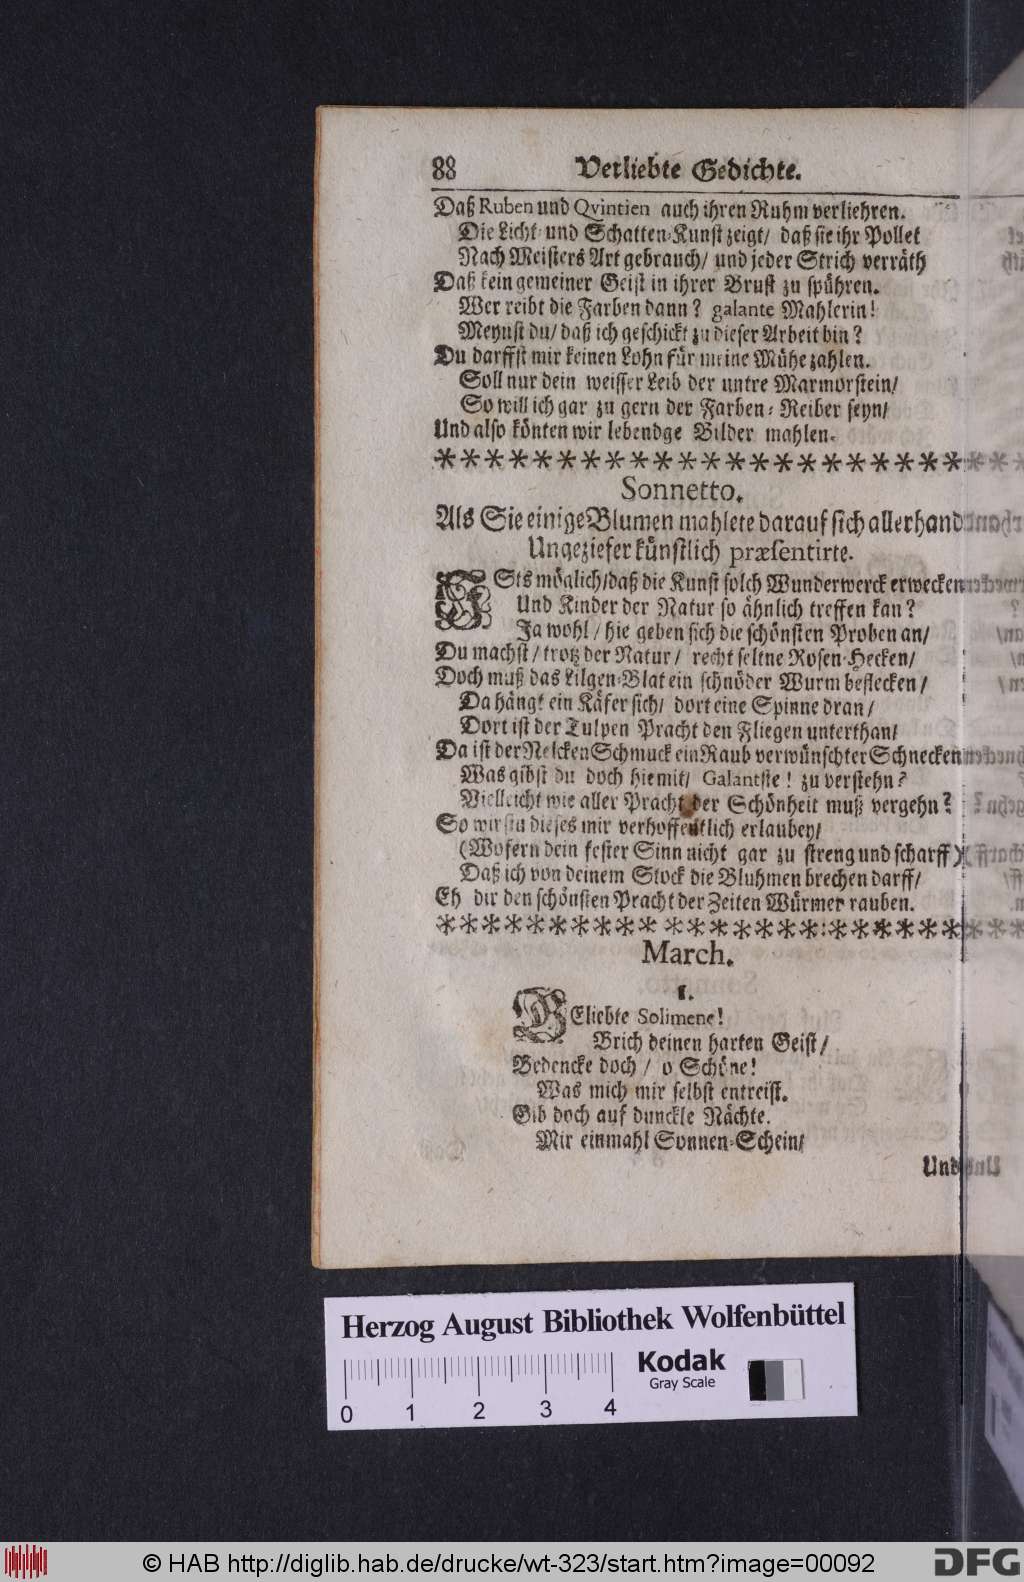 88 Verliebte Gedichte.
Daß Ruben und Qvintien auch ihren Ruhm verliehren.
Die Licht- und Schatten-Kunst zeigt/ daß sie ihr Pollet
Nach Meisters Art gebrauch/ und jeder Strich verräth
Daß kein gemeiner Geist in ihrer Brust zu spühren.
Wer reibt die Farben dann? galante Mahlerin!
Meynst du/ daß ich geschickt zu dieser Arbeit bin?
Du darffst mir keinen Lohn für meine Mühe zahlen.
Soll nur dein weisser Leib der untre Marmorstein/
So will ich gar zu gern der Farben-Reiber seyn/
Und also könten wir lebendge Bilder mahlen.
Sonnetto.
Als Sie einige Blumen mahlete darauf sich allerhand
Ungeziefer künstlich præsentirte.
ISts möglich/ daß die Kunst solch Wunderwerck erwecken
Und Kinder der Natur so ähnlich treffen kan?
Ja wohl/ hie geben sich die schönsten Proben an/
Du machst/ trotz der Natur/ recht seltne Rosen-Hecken/
Doch muß das Lilgen-Blat ein schnöder Wurm beflecken/
Da hängt ein Käfer sich/ dort eine Spinne dran/
Dort ist der Tulpen Pracht den Fliegen unterthan/
Da ist der Nelcken Schmuck ein Raub verwünschter Schnecken
Was gibst du doch hiemit/ Galantste! zu verstehn?
Vielleicht wie aller Pracht der Schönheit muß vergehn?
So wirstu dieses mir verhoffentlich erlauben/
(Wofern dein fester Sinn nicht gar zu streng und scharff)
Daß ich von deinem Stock die Bluhmen brechen darff/
Eh dir den schönsten Pracht der Zeiten Würmer rauben.
March.
1.
BEliebte Solimene!
Brich deinen harten Geist/
Bedencke doch/ o Schöne!
Was mich mir selbst entreist.
Gib doch auf dunckle Nächte.
Mir einmahl Sonnen-Schein/
Und
Herzog August Bibliothek Wolfenbüttel
Kodak
Gray Scale
0 1 2 3 4
© HAB http://diglib.hab.de/drucke/wt-323/start.htm?image=00092
DFG